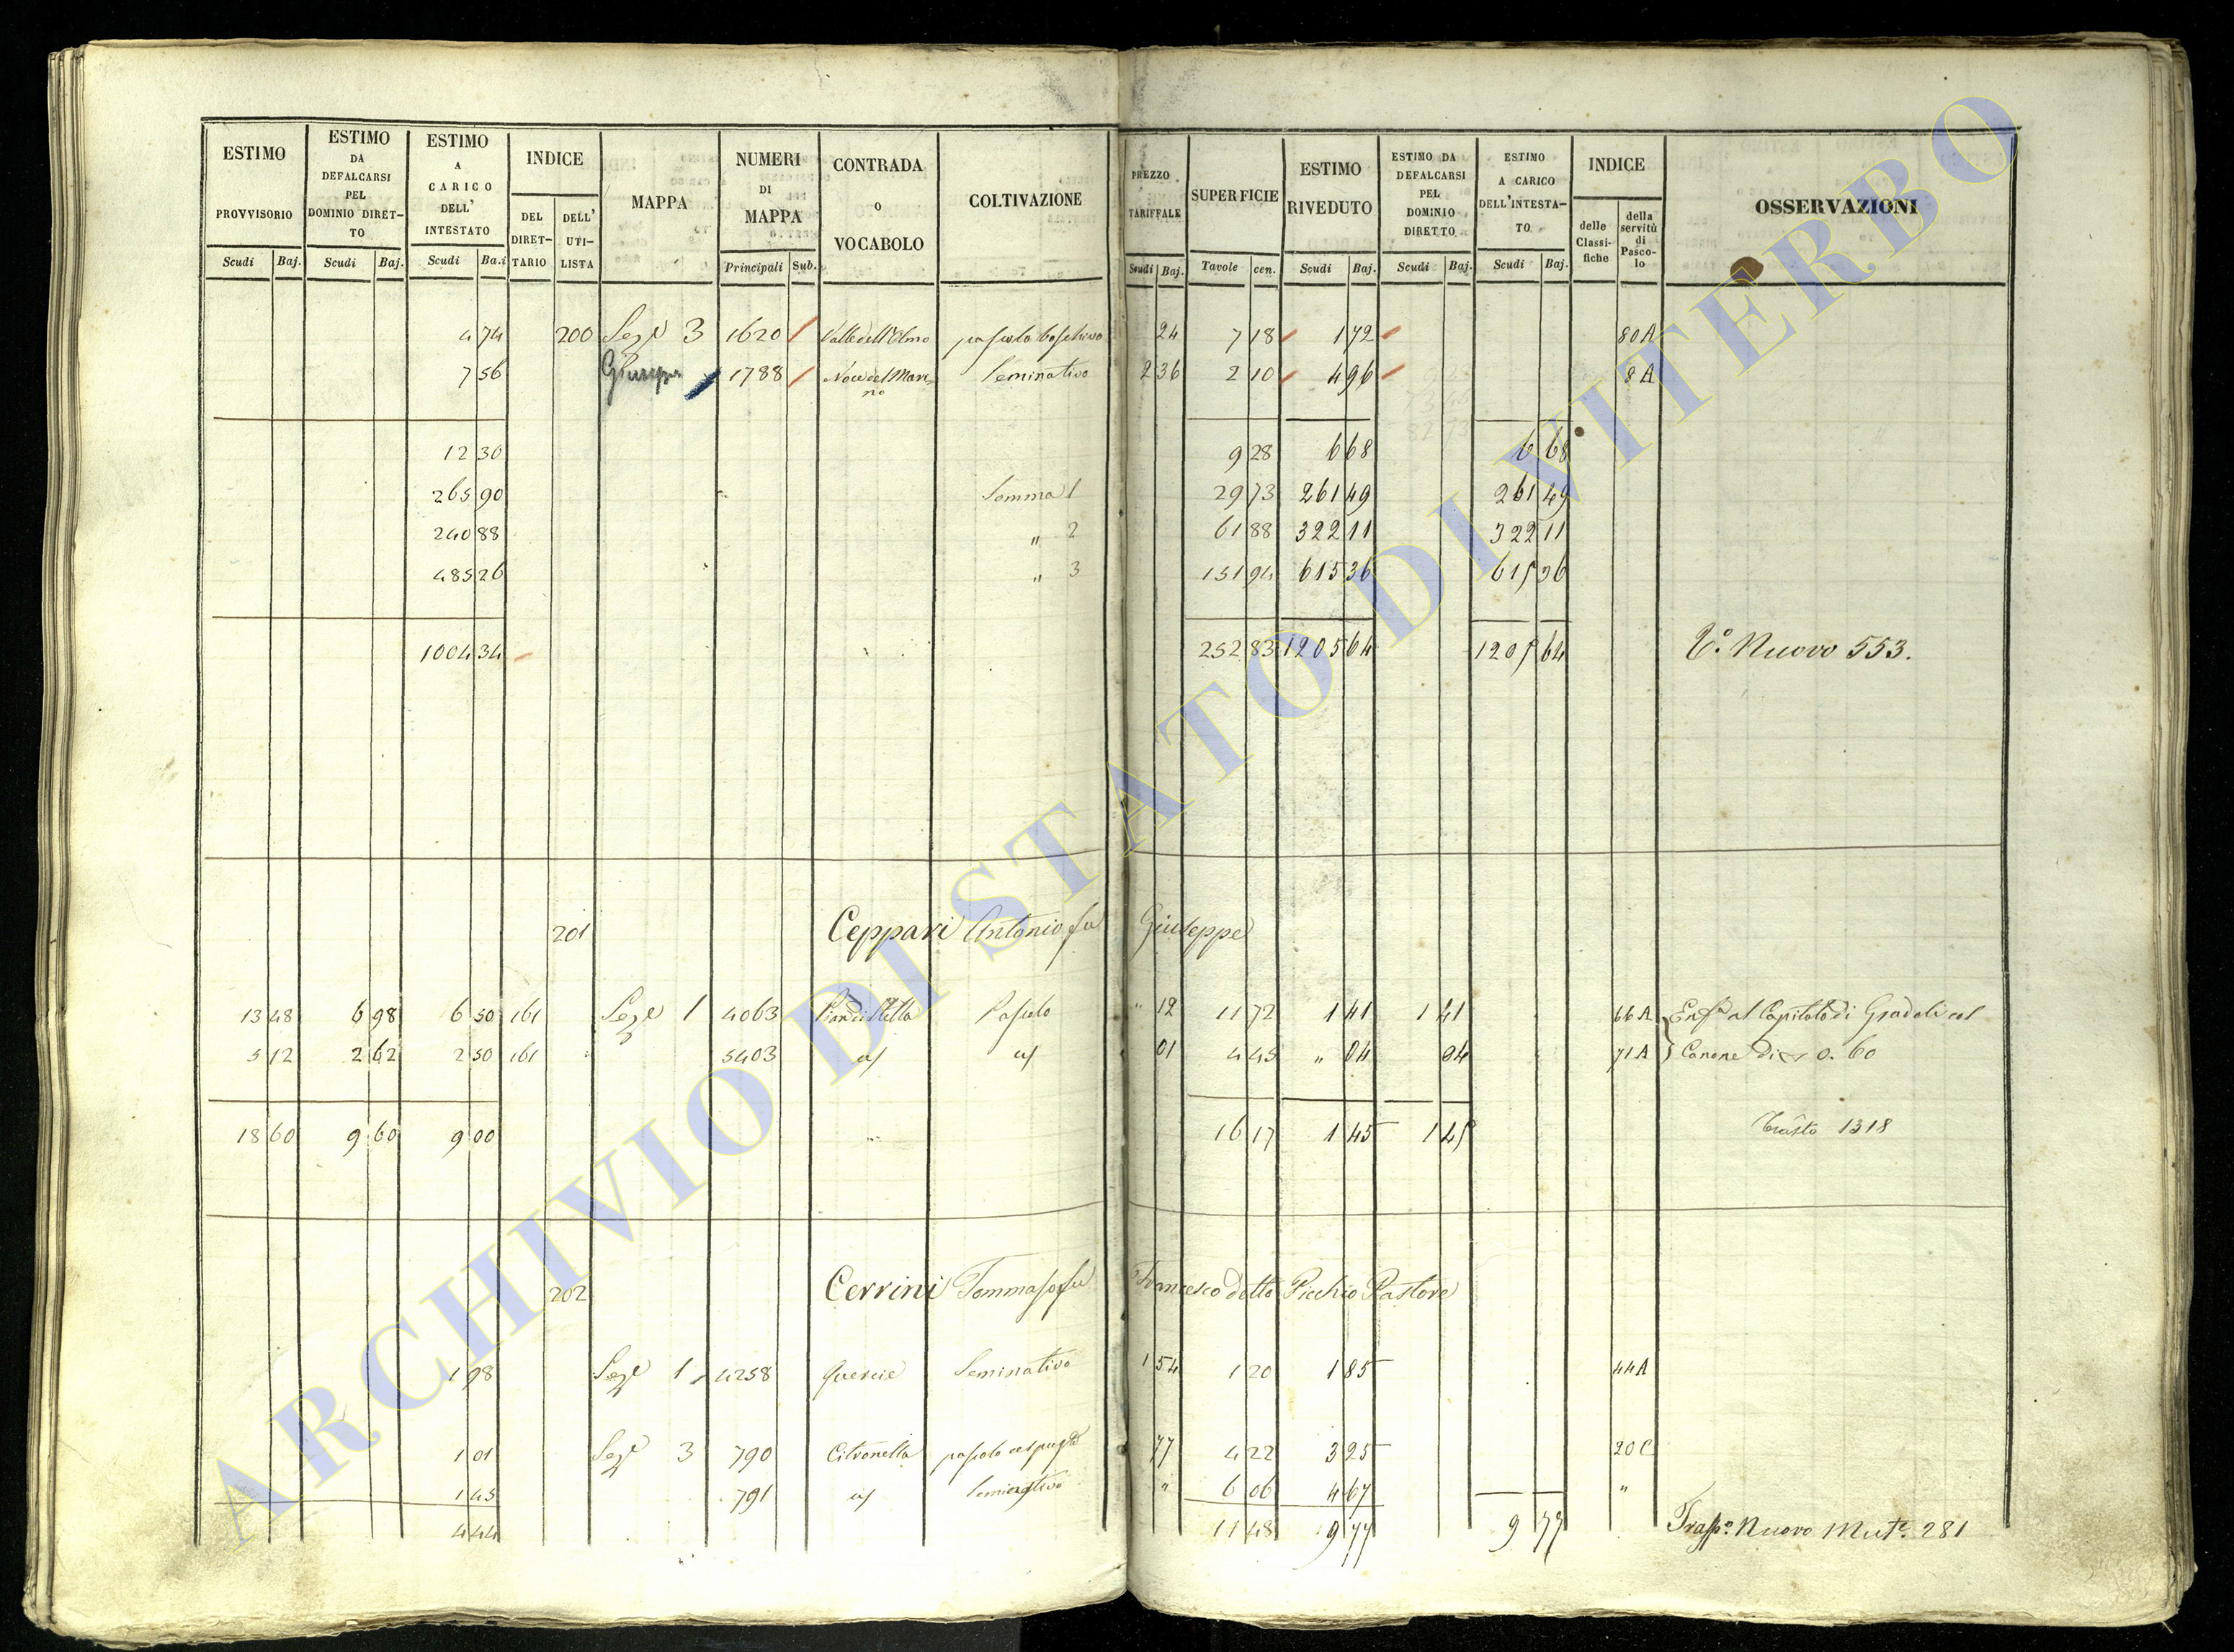 ESTIMO PROVVISORIO | ESTIMO DA DEFALCARSI PEL DOMINIO DIRET-TO | ESTIMO A CARICO DELL' INTESTATO | INDICE | MAPPA | NUMERI DI MAPPA | CONTRADA O VOCABOLO | COLTIVAZIONE | PREZZO TARIFFALE | SUPERFICIE | ESTIMO RIVEDUTO | ESTIMO DA DEFALCARSI PEL DOMINIO DIRETTO | ESTIMO A CARICO DELL'INTESTA-TO | INDICE | OSSERVAZIONI
DEL DIRET-TARIO | DELL' UTI-LISTA | delle Classi-fiche | della servitù di Pasco-lo
Scudi | Baj. | Scudi | Baj. | Scudi | Ba.i | Principali | Sub. | Scudi | Baj. | Tavole | cen. | Scudi | Baj. | Scudi | Baj. | Scudi | Baj.
4 74 | 200 | Sez.e 3 | 1620 | Valle dell'Olmo | pascolo boschivo | 24 | 7 18 | 1 72 | 80A
7 56 | Giuseppe | 1788 | Noce del Mari-no | Seminativo | 2 36 | 2 10 | 4 96 | 8A
12 30 | 9 28 | 6 68 | 6 68
265 90 | Somma 1 | 29 73 | 261 49 | 261 49
240 88 | " 2 | 61 88 | 322 11 | 322 11
485 26 | " 3 | 151 94 | 615 36 | 615 36
1004 34 | 252 83 | 1205 64 | 1205 64 | Nuovo 553.
201 | Ceppari Antonio fu Giuseppe
13 48 | 6 98 | 6 50 | 161 | Sez.e 1 | 4063 | Pian di Stella | Pascolo | " 12 | 11 72 | 1 41 | 1 41 | 66A | Enf.a al Capitolo di Gradoli col
5 12 | 2 62 | 2 50 | 161 | 5403 | 01 | 4 45 | " 04 | 04 | 71A | Canone di 0. 60
18 60 | 9 60 | 9 00 | 16 17 | 1 45 | 1 45 | 1318
202 | Cerrini Tommaso fu Francesco detto Picchio Pastore
1 98 | Sez.e 1 | 4258 | Quercie | Seminativo | 1 54 | 1 20 | 1 85 | 44A
1 01 | Sez.e 3 | 790 | Citronella | pascolo cespug.to | 77 | 4 22 | 3 25 | 20C
1 45 | 791 | Seminativo | " | 6 06 | 4 67 | "
4 44 | 11 48 | 9 77 | 9 77 | Trasp.o Nuovo Mut.e 281
ARCHIVIO DI STATO DI VITERBO